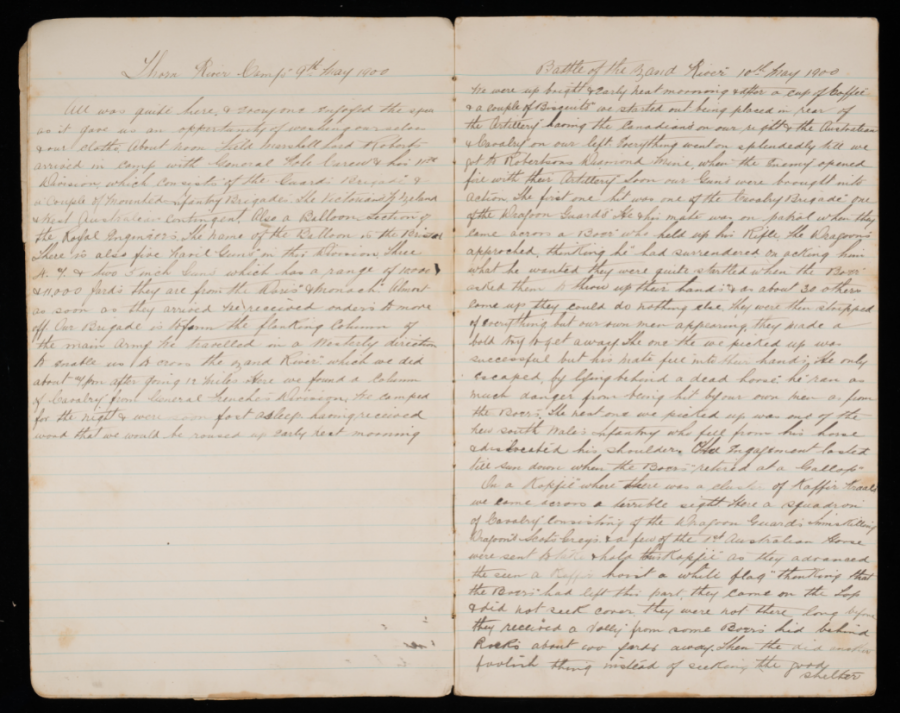 Thora River Camp 9th May 1900
All was quiet here, & everyone enjoyed the spell
as it gave us an opportunity of washing ourselves
& our cloths. About noon Field Marshall Lord Roberts
arrived in camp with General Pole Carew & his 11th
Division, which consists of the Guards Brigade &
a couple of Mounted Infantry Brigades. The Victorian N Zeland
& West Australian contingent Also a Balloon Section of
the Royal Engineers. The name of the Balloon is the Bristol
There is also five Navil Guns in this Division Three
4. 7. & two 5 inch Guns which has a range of 10000
& 11,000 yards they are from the Doris & Monach. Almost
as soon as they arrived We received orders to move
off. Our Brigade is to form the flanking Column of
the main Army. We travelled in a Westerly direction
to enable us to cross the Zand River which we did
about 4 pm after going 12 miles Here we found a Column
of Cavalry from General Frenches Division. We camped
for the night & were soon fast asleep having received
word that we would be roused up early next morning
Battle of the Zand River 10th May 1900
We were up bright & early next morning & after a cup of Coffee
& a couple of Biscuits we started out being placed in rear of
the Artillery having the Canadians on our right & the Australian
& Cavalry on our left. Everything went on splendedly till we
got to Robertsons Diamond Mine, when the Enemy opened
fire with their Artillery Soon our Guns were brought into
Action. The first one hit was one of the Cavalry Brigade one
of the Dragoon Guards He & his mate was on patrol when they
came across a Boer who held up his Rifle, The Dragoons
approched, thinking he had surrendered on acking him
what he wanted they were quite startled when the Boer
asked them to throw up their hands & as about 30 others
come up they could do nothing else, they were then stripped
of everything but our own men appearing, they made a
bold try to get away. The one the we picked up was
successful but his mate fell into their hands, He only
escaped by lying behind a dead horse he ran as
much danger from being hit by our own men as from
the Boers. The next one we picked up was one of the
New South Wales Infantry who fell from his horse
& dislocated his shoulder. The Engagement lasted
till sun down when the Boers retired at a Gallop
On a Kopje where there was a cluster of Kaffir Kraals
we came across a terrible sight Here a squadron
of Cavalry consisting of the Dragoon Guards Inniskilling
Dragoons Scots Greys & a few of the 1st Australian Horse
were sent to take & hold this Kopje as they advanced
the seen a Kaffir hoist a white flag thinking that
the Boers had left this part, they came on the top
& did not seek cover they were not there long before
they received a Volly from some Boers hid behind
Rocks about 600 yards away. Then the did another
foolish thing instead of seeking the good
shelter